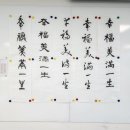 幸福美好一生
幸福美好一生
幸福美好一生
幸福美满一生